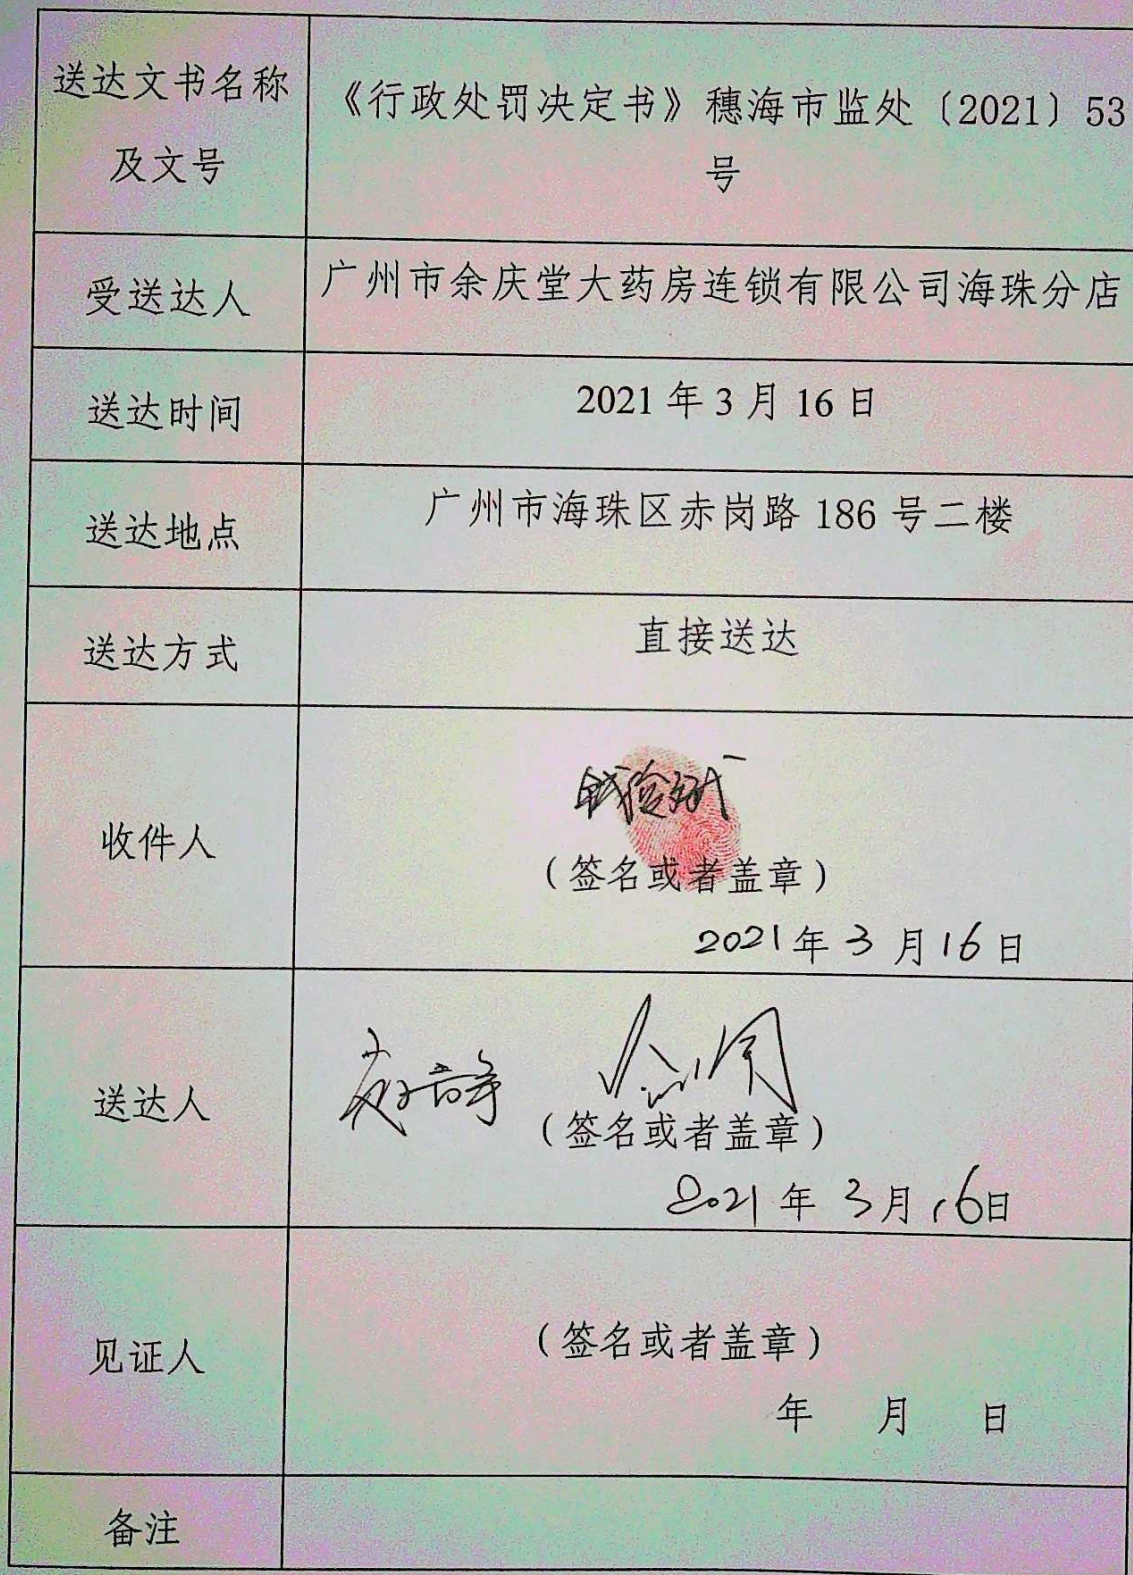 送达文书名称
及文号
《行政处罚决定书》穗海市监处〔2021〕53
号
受送达人
广州市余庆堂大药房连锁有限公司海珠分店
送达时间
2021年3月16日
送达地点
广州市海珠区赤岗路186号二楼
送达方式
直接送达
收件人
（签名或者盖章）
2021年3月16日
送达人
（签名或者盖章）
2021年3月16日
见证人
（签名或者盖章）
年 月 日
备注